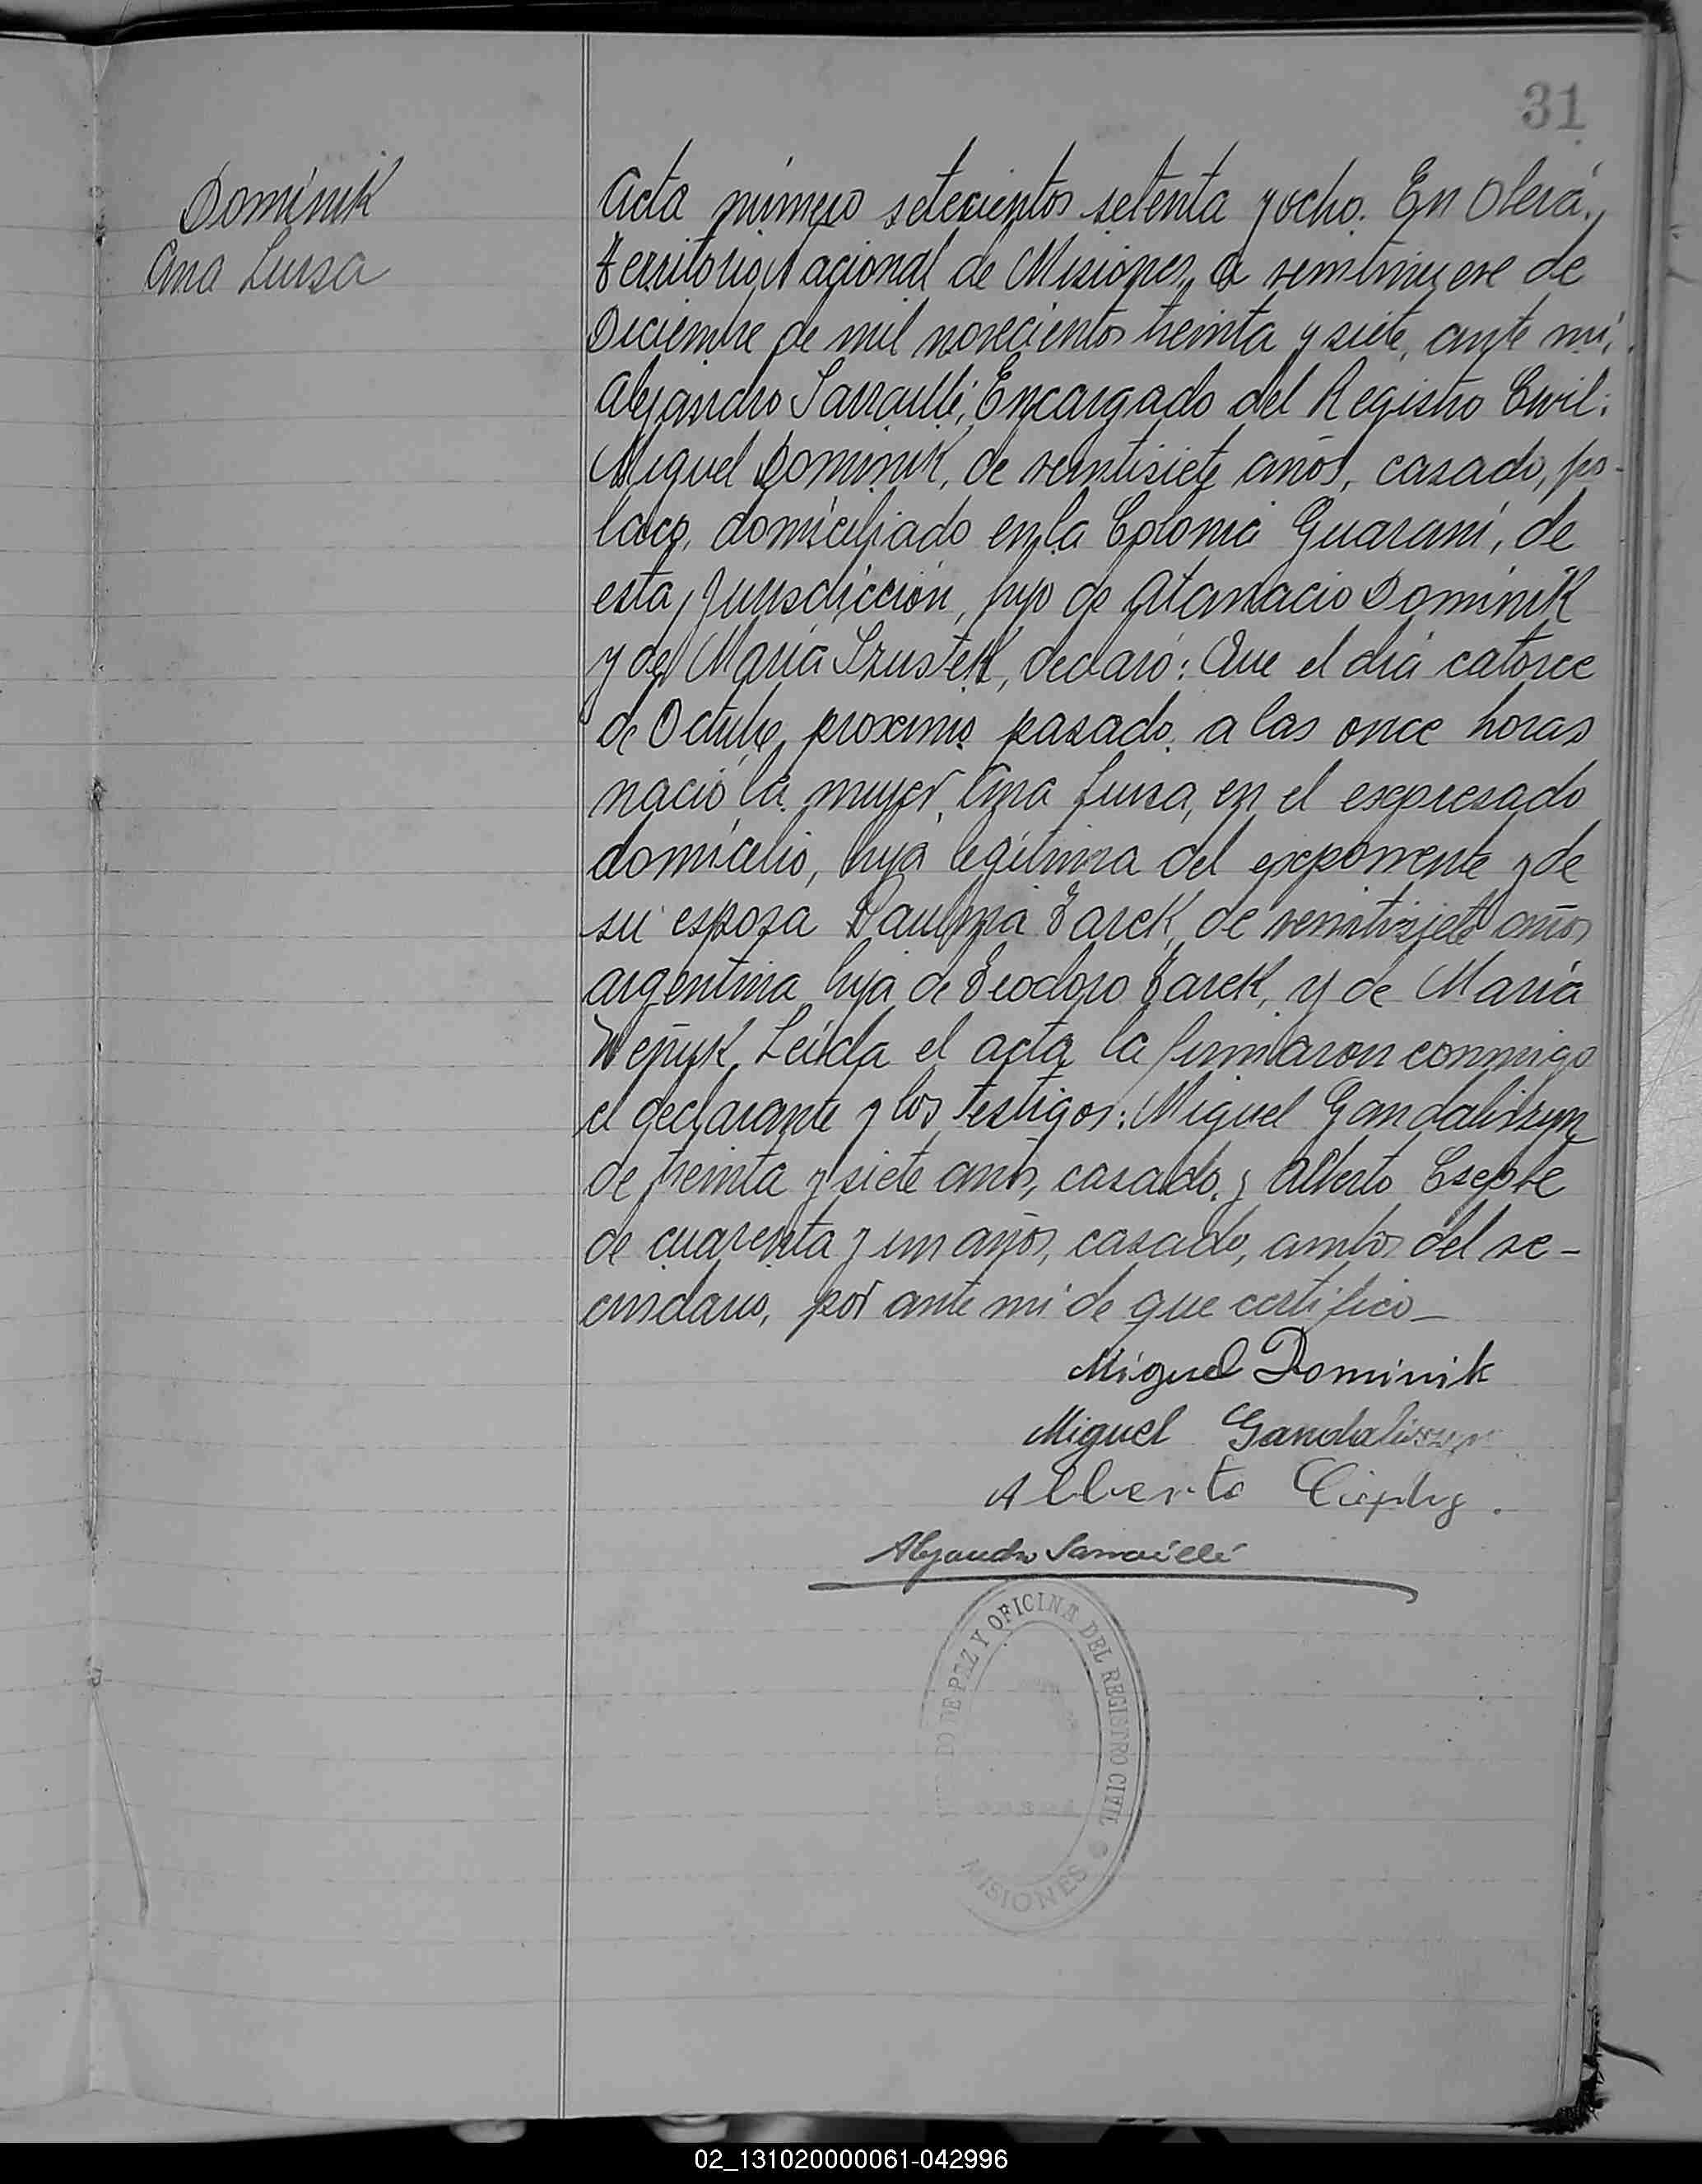 31
Dominik
Ana Luisa
Acta número setecientos setenta y ocho. En Oberá,
territorio Nacional de Misiones, a veintinueve de
Diciembre de mil novecientos treinta y siete, ante mí,
Alejandro Sarraillé, Encargado del Registro Civil:
Miguel Dominik, de veintisiete años, casado, po-
laco, domiciliado en la Colonia Guaraní, de
esta Jurisdicción, hijo de Atanacio Dominik
y de María Szustek, declaró: Que el día catorce
de Octubre próximo pasado, a las once horas
nació la mujer, Ana Luisa, en el expresado
domicilio, hija legítima del exponente y de
su esposa Paulina Zarek, de veintisiete años
argentina hija de Teodoro Zarek, y de María
Leída el acta la firmaron conmigo
el declarante y los testigos: Miguel Gandaliszyn
de treinta y siete años, casado, y Alberto Cseple
de cuarenta y un años, casado, ambos del ve-
cindario, por ante mí de que certifico_
Miguel Dominik
Miguel Gandaliszyn
Alberto
Alejandro Sarraillé
DO DE PAZ Y OFICINA DEL REGISTRO CIVIL
MISIONES
02_131020000061-042996